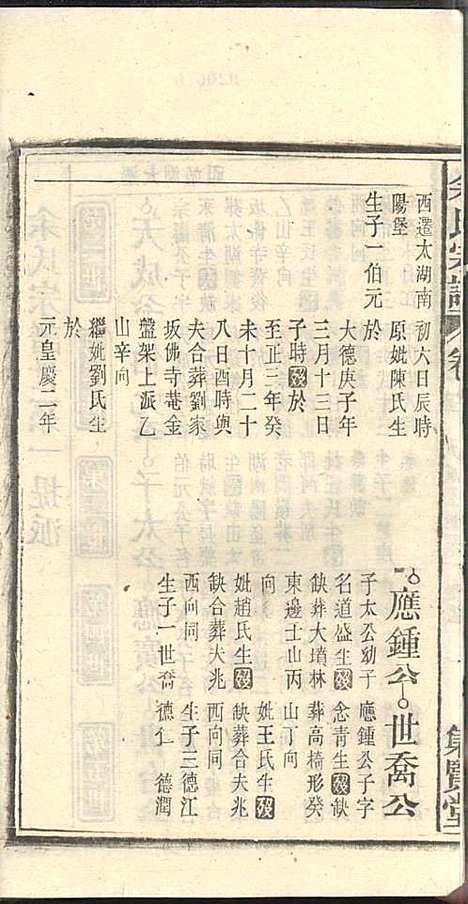 余氏宗譜 卷
集賢堂
西遷太湖南
陽堡
生子一伯元
初六日辰時
原妣陳氏生
於
大德庚子年
三月十三日
子時歿於
至正三年癸
未十月二十
八日酉時與
夫合葬劉家
坂佛寺菴金
盤架上派乙
山辛向
繼妣劉氏生
於
元皇慶二年
應鍾公
子太公幼子
名道盛生歿
缺葬大墳林
東邊士山丙
向
妣趙氏生歿
缺合葬夫兆
西向同
生子一世喬
世喬公
應鍾公子字
念青生歿缺
葬高橋形癸
山丁向
妣王氏生歿
缺葬合夫兆
西向同
生子三德江
德仁 德潤